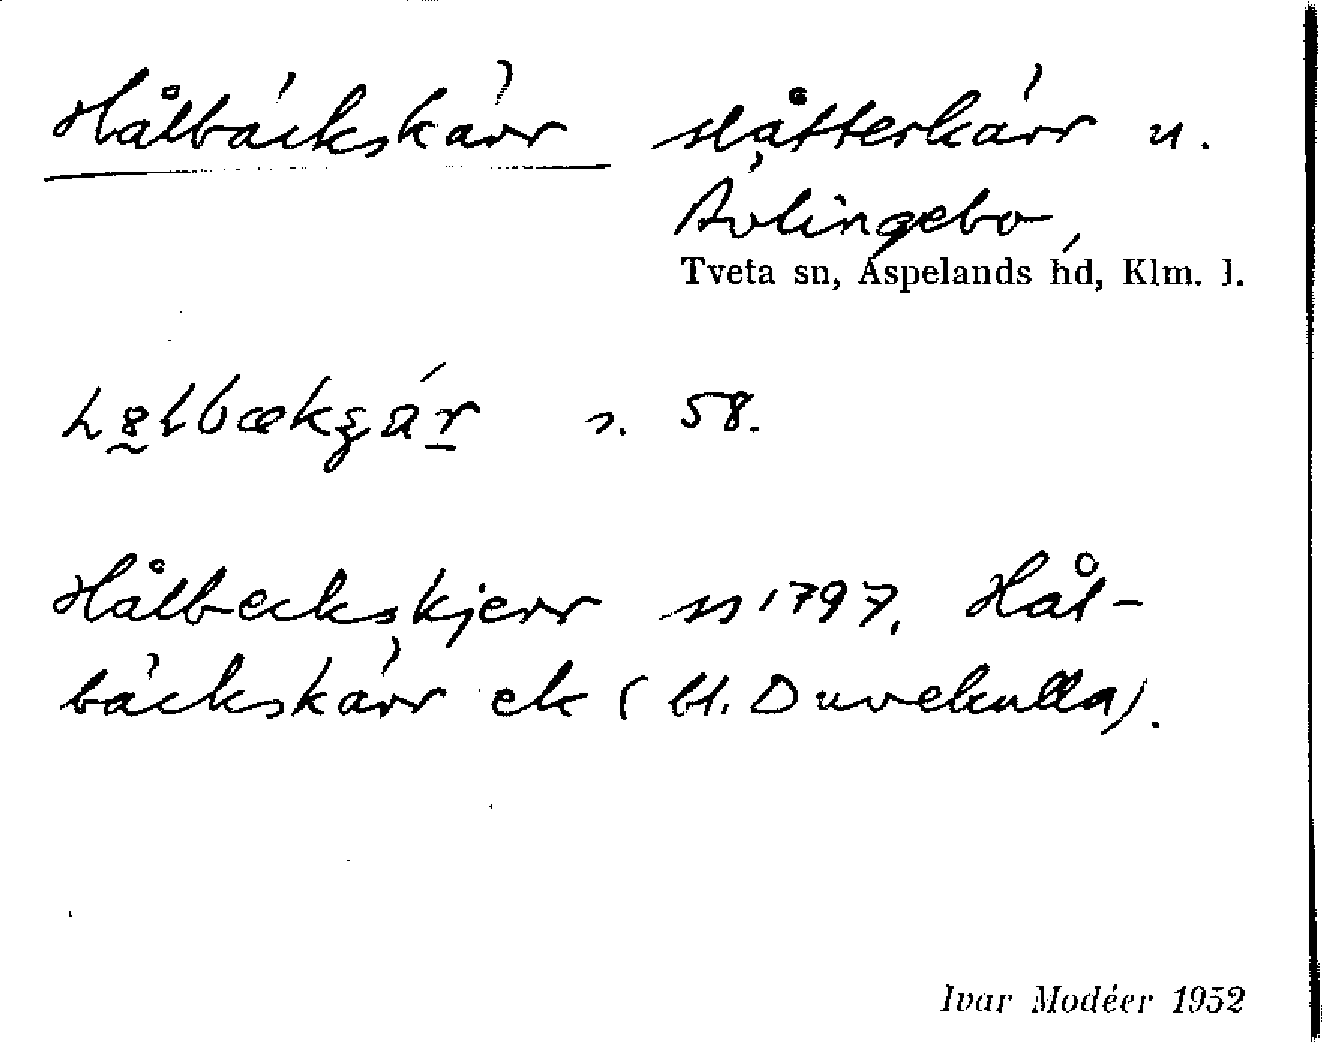 Hålbäckskärr slåtterkärr u.
Ävlingebo,
Tveta sn, Aspelands hd, Klm. l.
s. 58.
Hålbeckskjerr ss 1797. Hål-
bäckskärr ek (bl. Duvekulla).
Ivar Modéer 1952